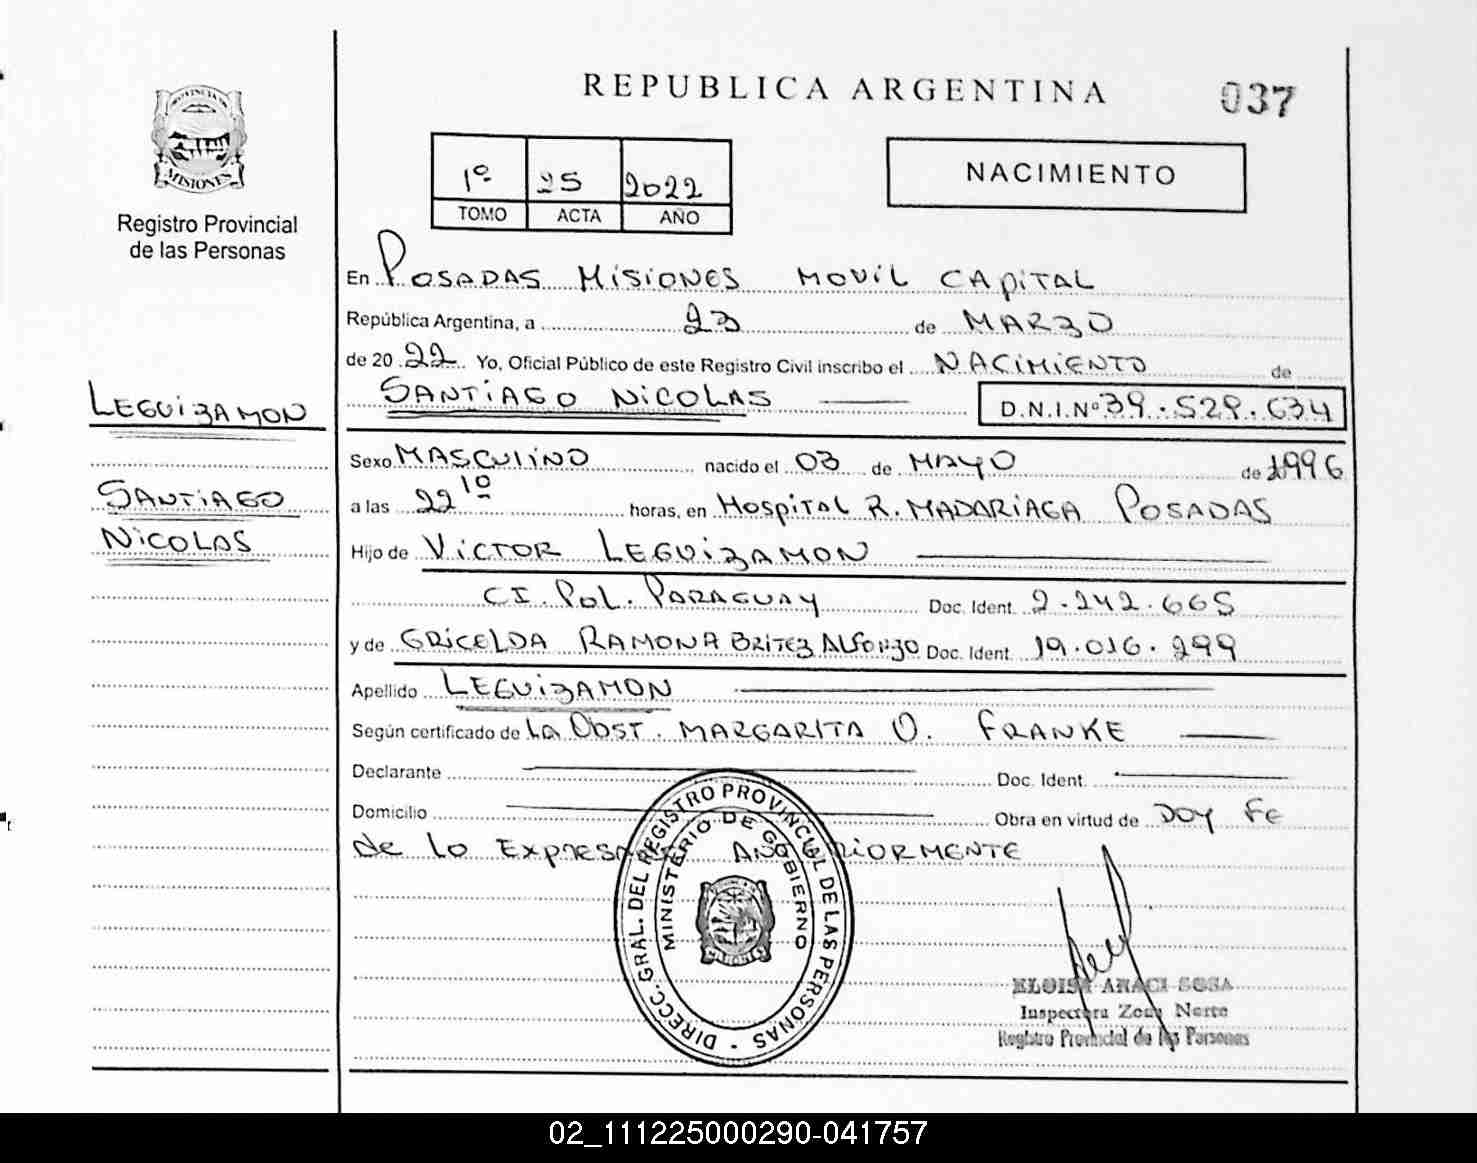 REPUBLICA ARGENTINA
037
PROVINCIA DE
MISIONES
Registro Provincial
de las Personas
1º 25 2022
TOMO ACTA AÑO
NACIMIENTO
En POSADAS MISIONES MOVIL CAPITAL
República Argentina, a 23 de MARZO
de 20 22 Yo, Oficial Público de este Registro Civil inscribo el NACIMIENTO de
SANTIAGO NICOLAS D.N.I.Nº 39.529.634
LEGUIZAMON
SANTIAGO
NICOLAS
Sexo MASCULINO nacido el 03 de MAYO de 1996
a las 22 10 horas, en Hospital R. MADARIAGA POSADAS
Hijo de VICTOR LEGUIZAMON
CI. Pol. PARAGUAY Doc. Ident. 2.242.665
y de GRICELDA RAMONA BRITEZ ALFONZO Doc. Ident. 19.016.299
Apellido LEGUIZAMON
Según certificado de La Obst. MARGARITA O. FRANKE
Declarante Doc. Ident.
Domicilio Obra en virtud de DOY FE
de lo EXPRESADO ANTERIORMENTE
DIRECC. GRAL. DEL REGISTRO PROVINCIAL DE LAS PERSONAS -
MINISTERIO DE GOBIERNO
ELOISA ARACI SOSA
Inspectora Zona Norte
Registro Provincial de las Personas
02_111225000290-041757